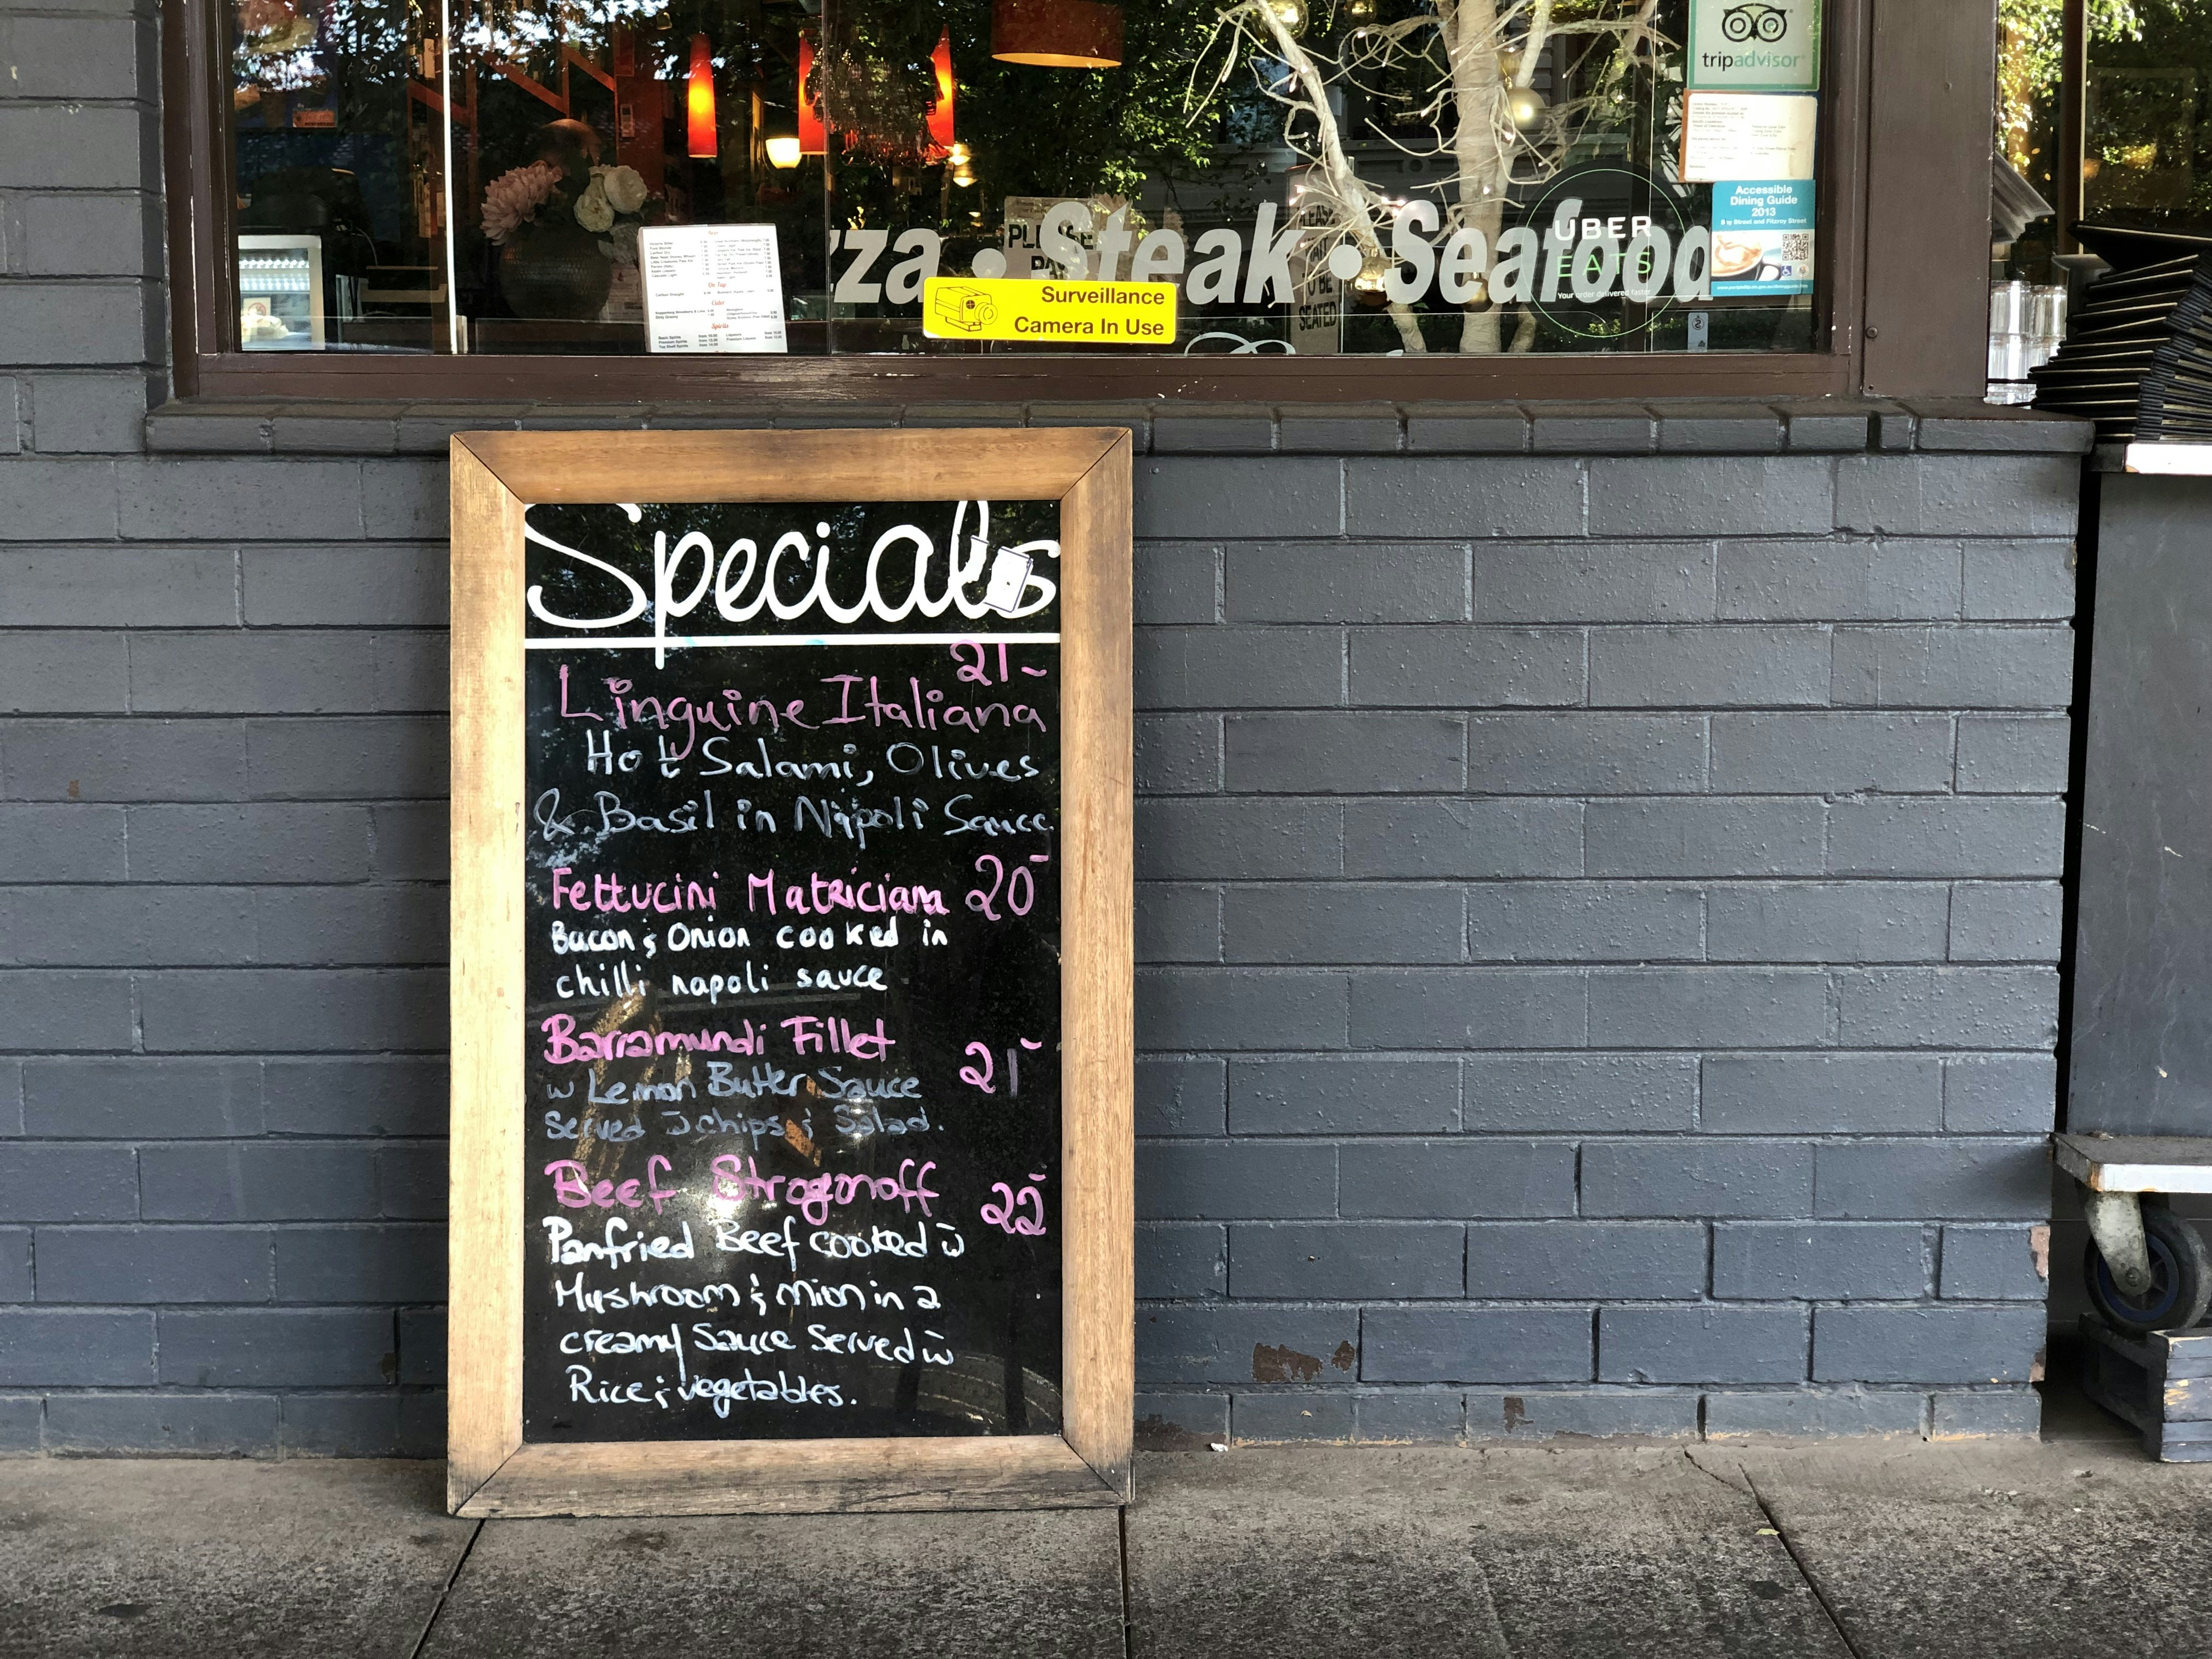 tripadvisor
Accessible
Dining Guide
2013
Bay Street and Fitzroy Street
zza • Steak • Seafood
UBER
EATS
Your order delivered faster
PLEASE
PLEASE
WAIT
TO BE
SEATED
Surveillance
Camera In Use
On Tap
Cider
Spirits
Specials
21-
Linguine Italiana
Hot Salami, Olives
& Basil in Napoli Sauce
Fettucini Matriciana 20-
Bacon & Onion cooked in
chilli napoli sauce
Barramundi Fillet
21-
w Lemon Butter Sauce
Served w chips & Salad.
Beef Strogonoff
22-
Panfried Beef cooked w
Mushroom & Onion in a
creamy Sauce Served w
Rice & vegetables.